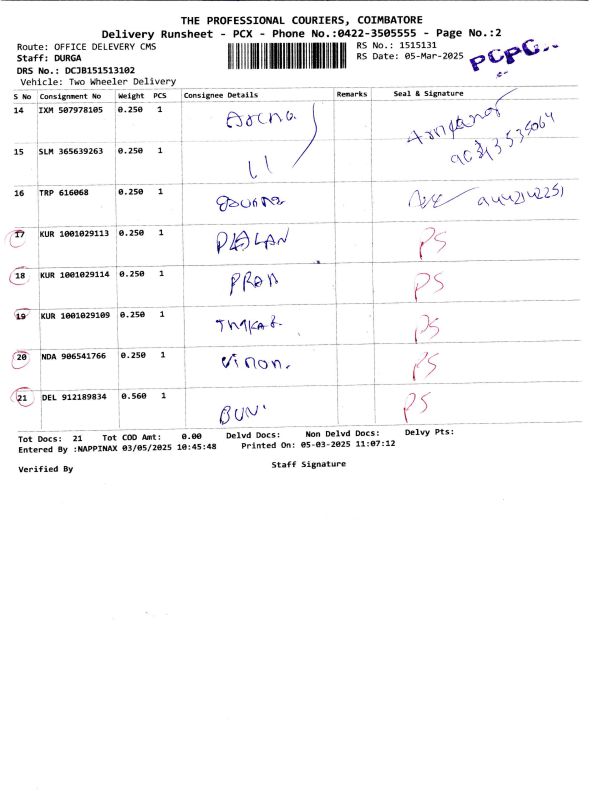 THE PROFESSIONAL COURIERS, COIMBATORE
Delivery Runsheet - PCX - Phone No.:0422-3505555 - Page No.:2
Route: OFFICE DELEVERY CMS RS No.: 1515131
Staff: DURGA RS Date: 05-Mar-2025 PCPC..
DRS No.: DCJB151513102
Vehicle: Two Wheeler Delivery
S No Consignment No Weight PCS Consignee Details Remarks Seal & Signature
14 IXM 507978105 0.250 1
15 SLM 365639263 0.250 1 11
16 TRP 616068 0.250 1
17 KUR 1001029113 0.250 1 PS
18 KUR 1001029114 0.250 1 PS
19 KUR 1001029109 0.250 1 PS
20 NDA 906541766 0.250 1 PS
21 DEL 912189834 0.560 1 BUN. PS
Tot Docs: 21 Tot COD Amt: 0.00 Delvd Docs: Non Delvd Docs: Delvy Pts:
Entered By :NAPPINAX 03/05/2025 10:45:48 Printed On: 05-03-2025 11:07:12
Verified By Staff Signature